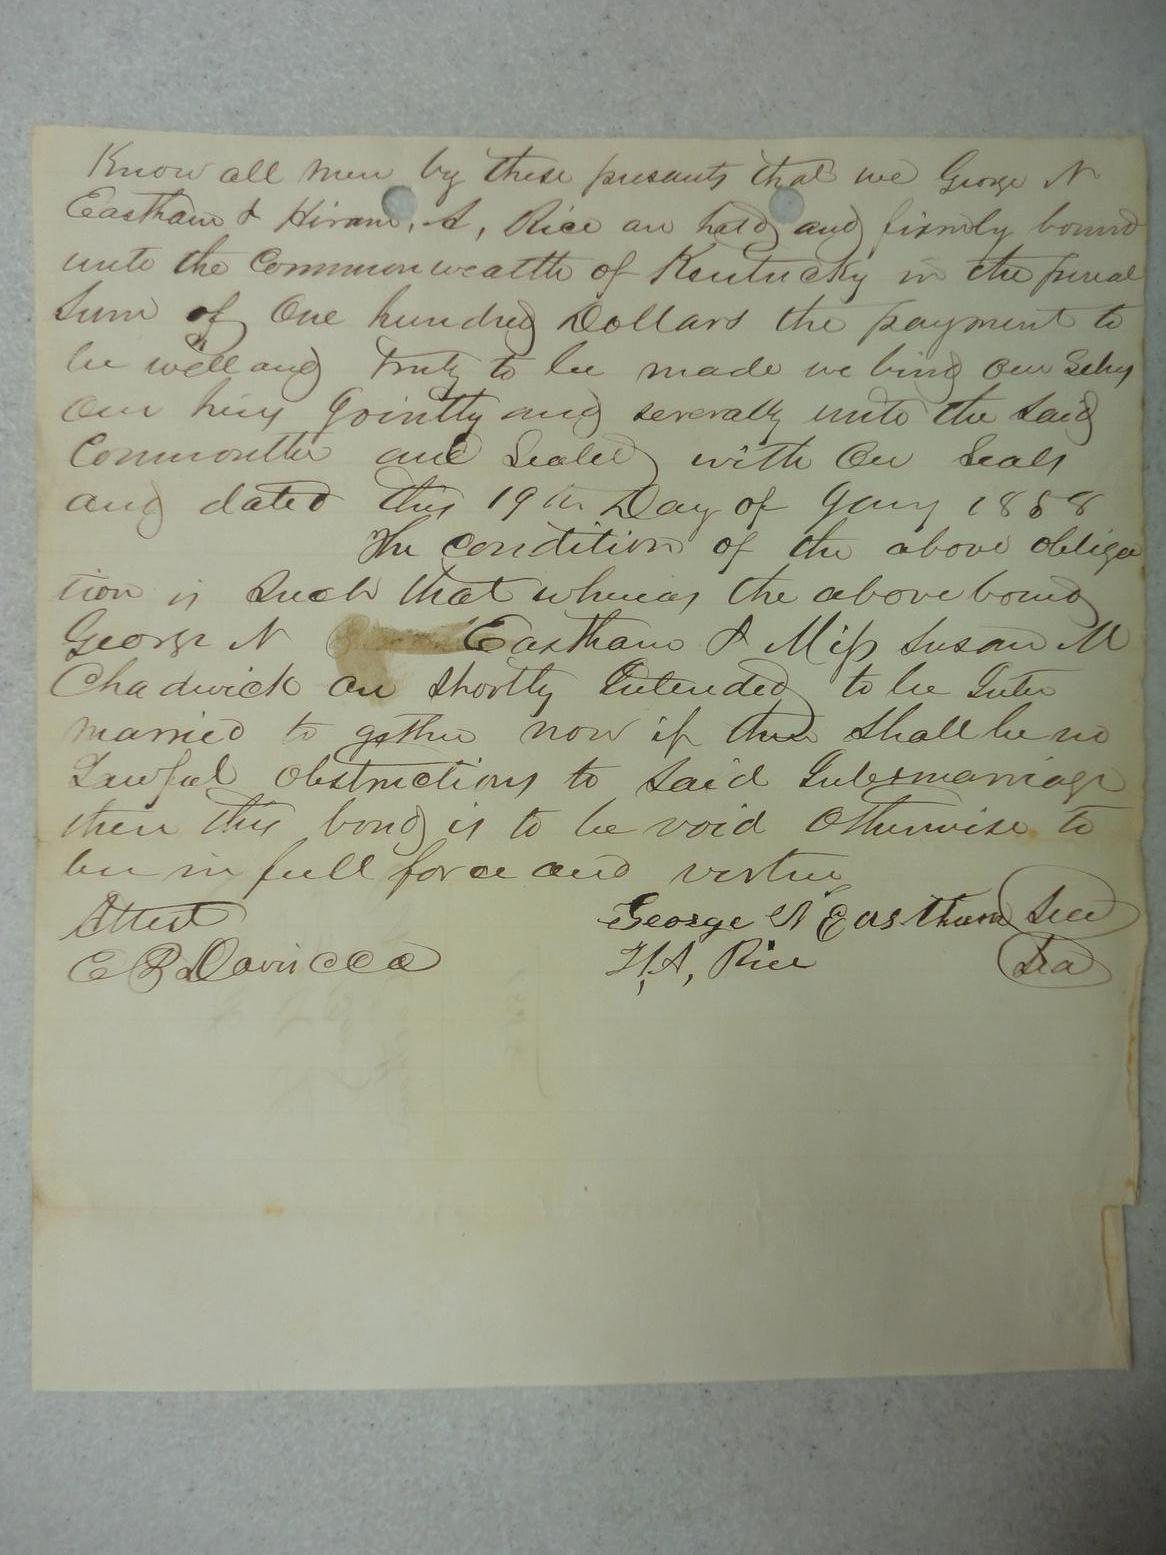 Know all men by these presants that we George N
Eastham & Hiram. A, Rice are held and firmly bound
unto the Commonwealth of Kentucky in the penal
Sum of One hundred Dollars the payment to
be well and truly to be made we bind our Selvs
Our heirs Jointly and severally unto the Said
Commonlth and Sealed with Our Seals
and dated this 19th Day of Jany 1858
The Condition of the above obliga
tion is Such that whereas the above bound
George N Eastham & Miss Susan M
Chadwick are Shortly Intended to be Inter
married to gether now if there Shall be no
Lawful Obstructions to Said Intermarriage
then this bond is to be void Otherwise to
be in full force and virtue
Attest George N Eastham Seal
H.A, Rice Seal